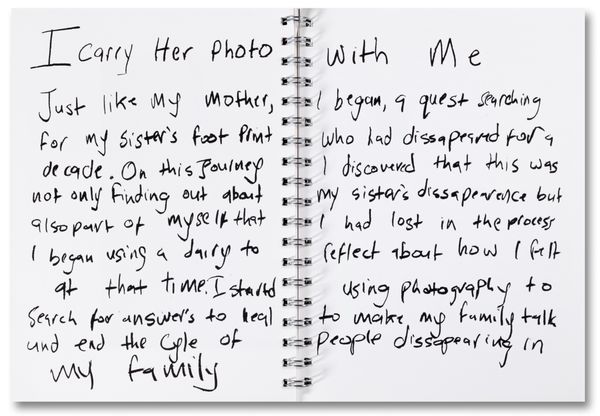 I carry Her Photo with Me
Just like My mother, I began, a quest searching
for my sister's foot print who had dissapeared for a
decade. On this Journey I discovered that this was
not only finding out about my sister's dissapearence but
also part of myself that I had lost in the process
I began using a dairy to reflect about how I felt
at that time. I started using photography to
Search for answers to heal to make my family talk
und end the Cyle of people dissapearing in
my family